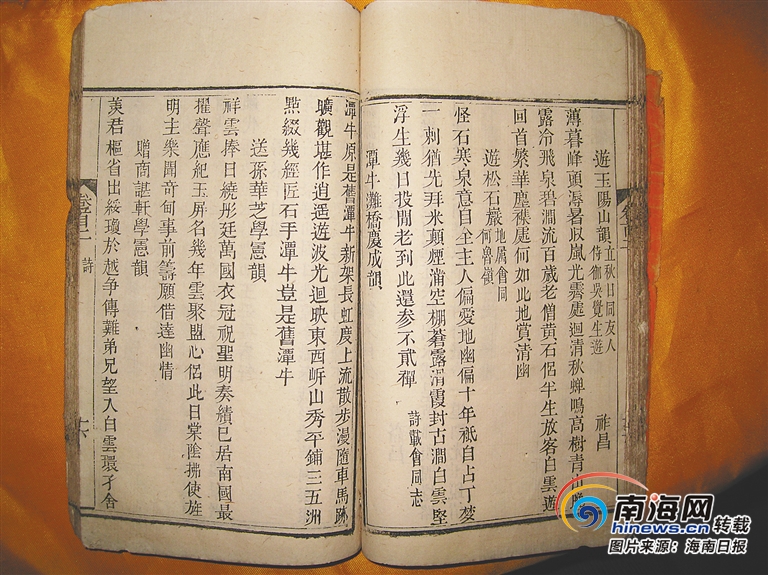 遊玉陽山韻 立秋日同友人侍伽吳覺生遊 祚昌
薄暮峰頭溽暑收嵐光霽處迴清秋蟬鳴高樹青山
露冷飛泉碧澗流百歲老僧黃石侶半生放客白雲遊
回首繁華塵襟處何如此地賞清幽
遊松石巖 地屬會同何魯嶺
怪石寒泉意自全主人偏愛地幽偏十年祗自占丁夢
一刺猶先拜米顛煙滿空棚蒼露滑霞封古澗白雲堅
浮生幾日投閒老到此還參不貳禪 詩載會同志
潭牛灘橋慶成韻
潭牛原是舊潭牛新架長虹慶上流散步漫隨車馬跡
曠觀堪作逍遙遊波光迴映東西岍山秀平鋪三五洲
點綴幾經匠石手潭牛豈是舊潭牛
送孫華芝學憲韻
祥雲捧日繞彤廷萬國衣冠祝聖明奏績已居南國最
擢聲應紀玉屏名幾年雲聚盟心侶此日棠陰拂使旌
明主樂聞奇甸事前籌願借達幽情
贈商諶軒學憲韻
美君樞省出綏瓊於越爭傳難弟兄望入白雲環子舍
詩
南海网
hinews.cn 转载
图片来源：海南日报